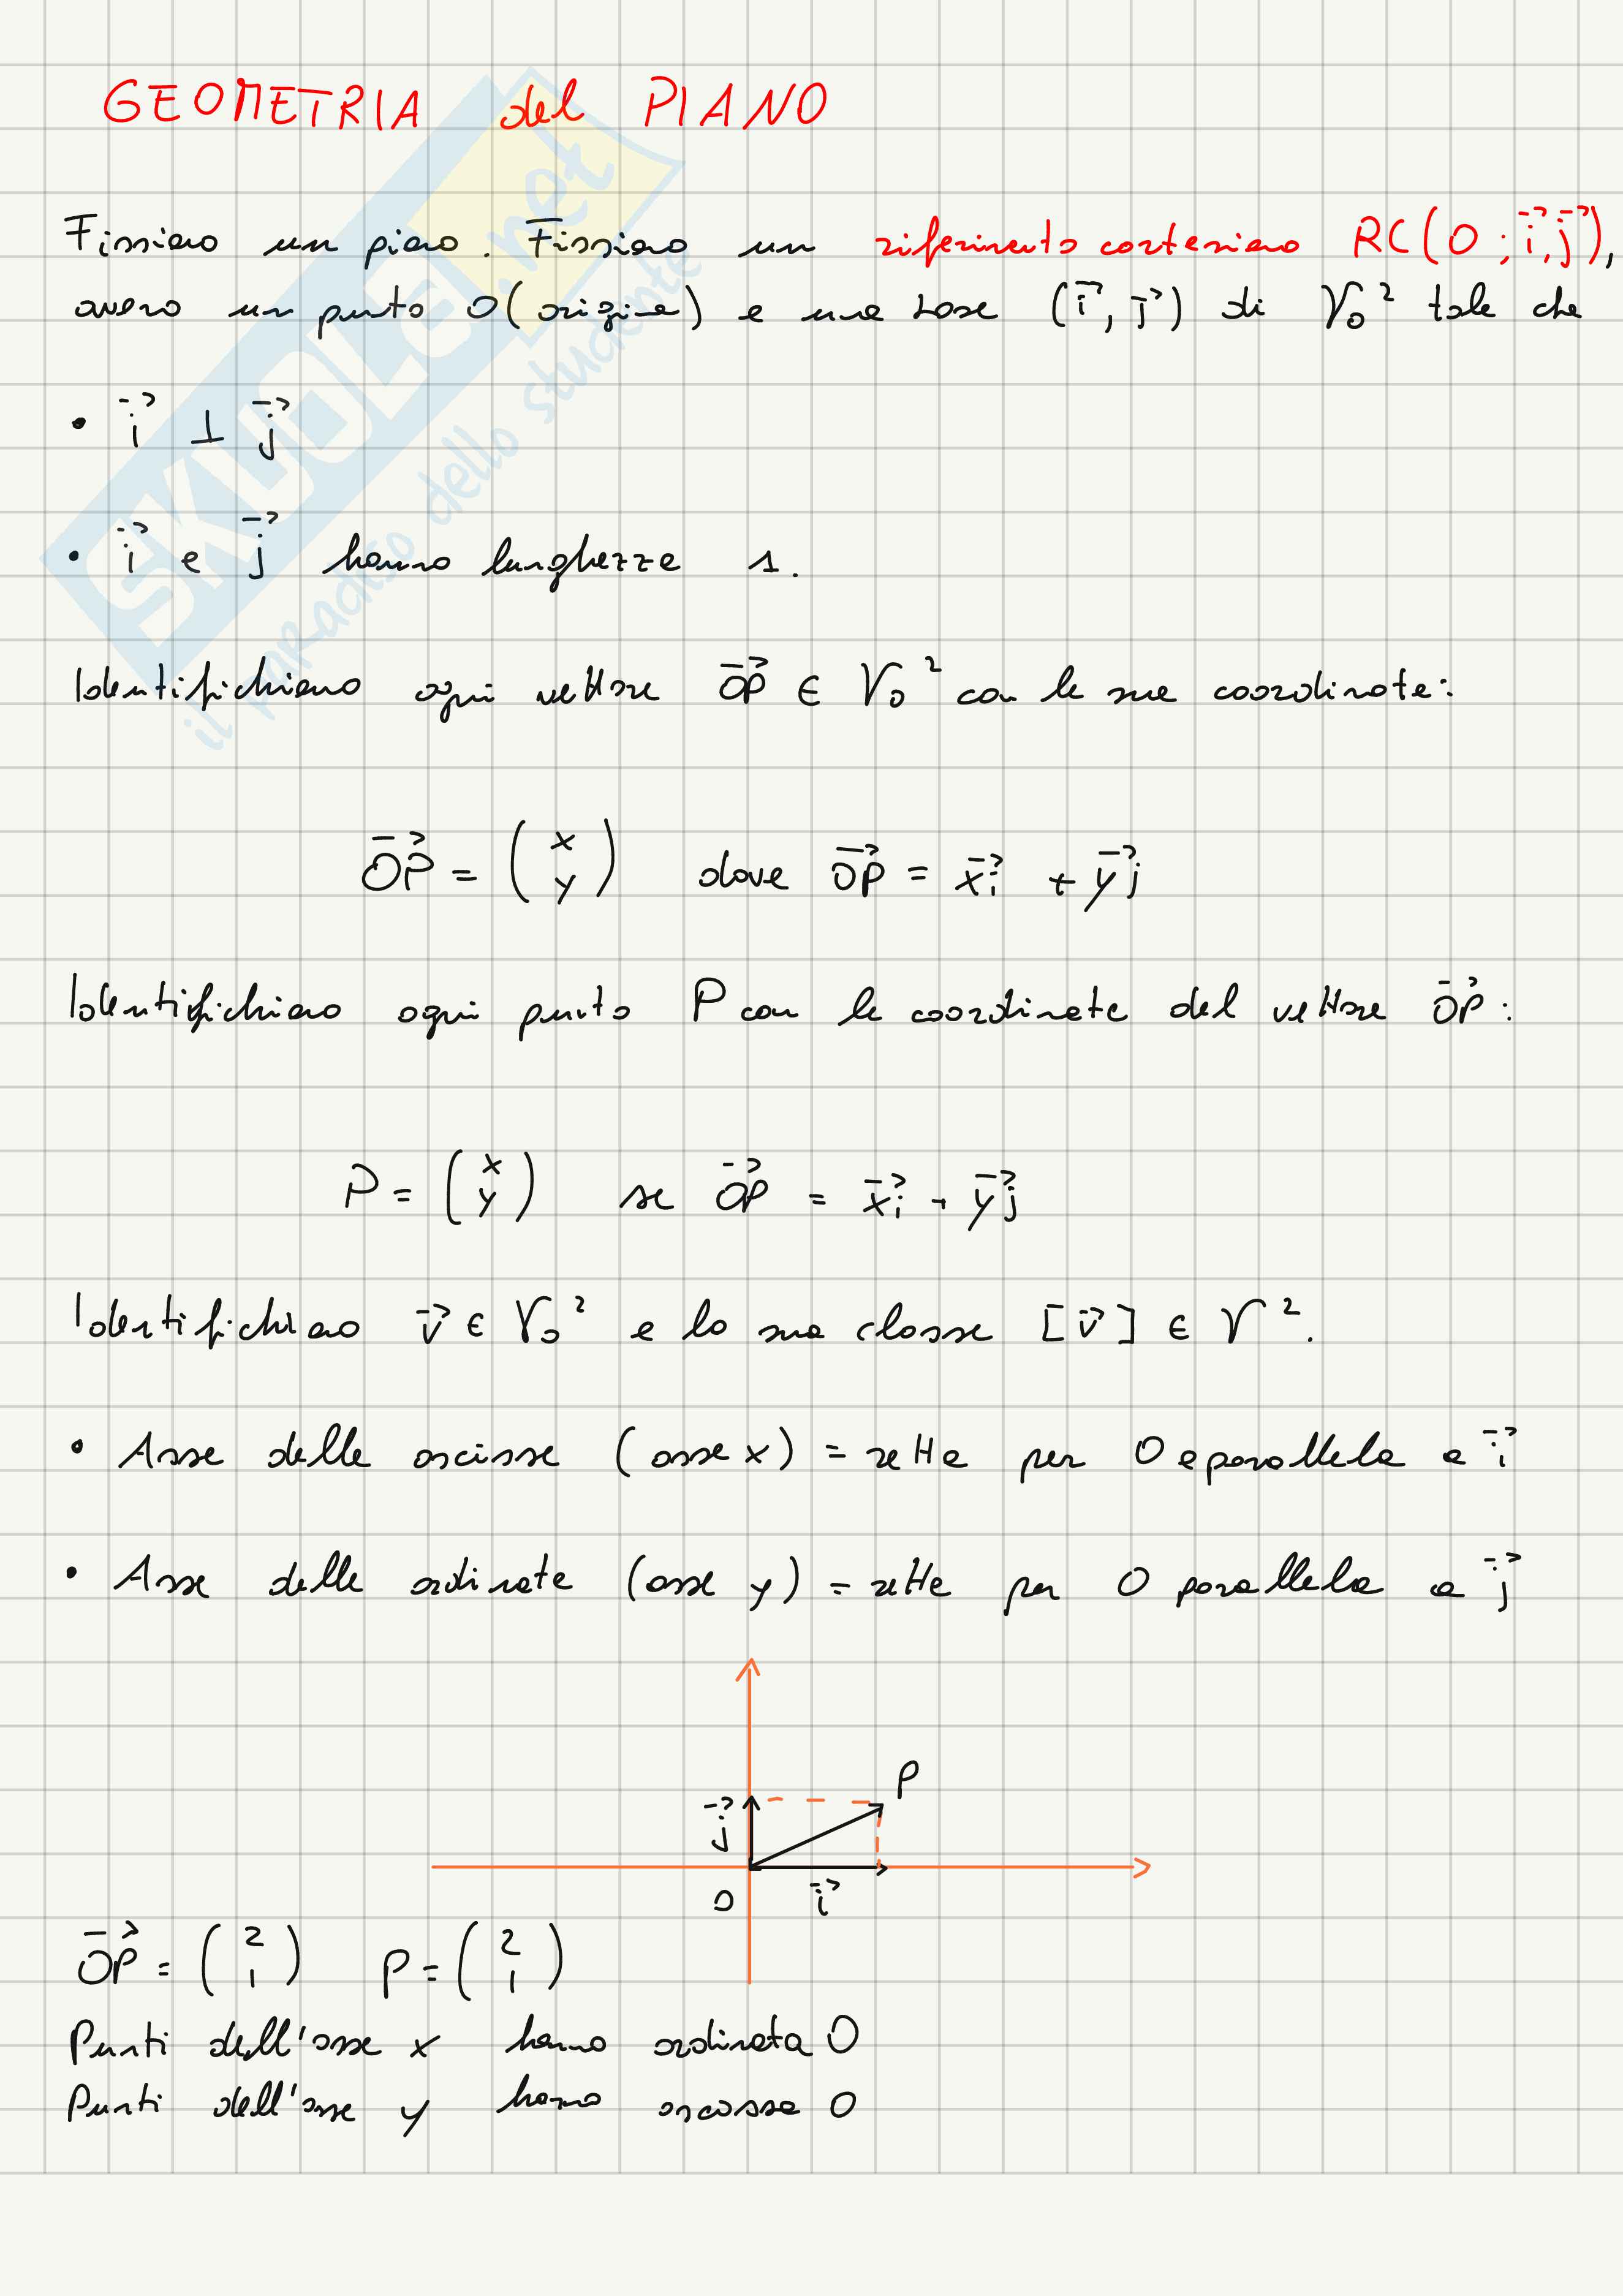 GEOMETRIA del PIANO
Fissiamo un piano. Fissiamo un riferimento cartesiano RC(O; i⃗, j⃗),
ovvero un punto O (origine) e una base (i⃗, j⃗) di V₀² tale che
• i⃗ ⊥ j⃗
• i⃗ e j⃗ hanno lunghezza 1.
Identifichiamo ogni vettore OP⃗ ∈ V₀² con le sue coordinate:
OP⃗ = (x y) dove OP⃗ = xi⃗ + yj⃗
Identifichiamo ogni punto P con le coordinate del vettore OP⃗:
P = (x y) se OP⃗ = xi⃗ + yj⃗
Identifichiamo v⃗ ∈ V₀² e la sua classe [v⃗] ∈ V².
• Asse delle ascisse (asse x) = retta per O e parallela a i⃗
• Asse delle ordinate (asse y) = retta per O parallela a j⃗
P
j⃗
O i⃗
OP⃗ = (2 1) P = (2 1)
Punti dell'asse x hanno ordinata 0
Punti dell'asse y hanno ascissa 0
SKUOLA.net
il paradiso dello studente